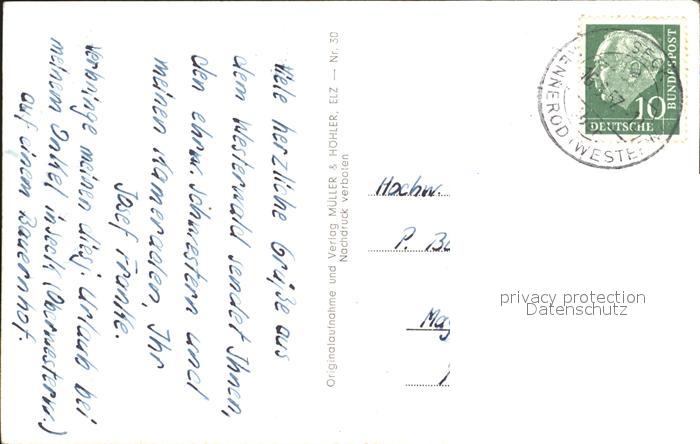 Viele herzliche Grüße aus
dem Westerwald sendet Ihnen,
den ehrw. Schwestern und
meinen Kameraden, Ihr
Josef Franke.
Verbringe meinen diesj. Urlaub bei
meinem Onkel in Seck (Oberwesterw.)
auf einem Bauernhof.
Originalaufnahme und Verlag MÜLLER & HÖHLER, ELZ — Nr. 30
Nachdruck verboten
Hochw.
P. B
Mag
privacy protection
Datenschutz
DEUTSCHE
BUNDESPOST
10
SECK
RENNEROD (WESTERW